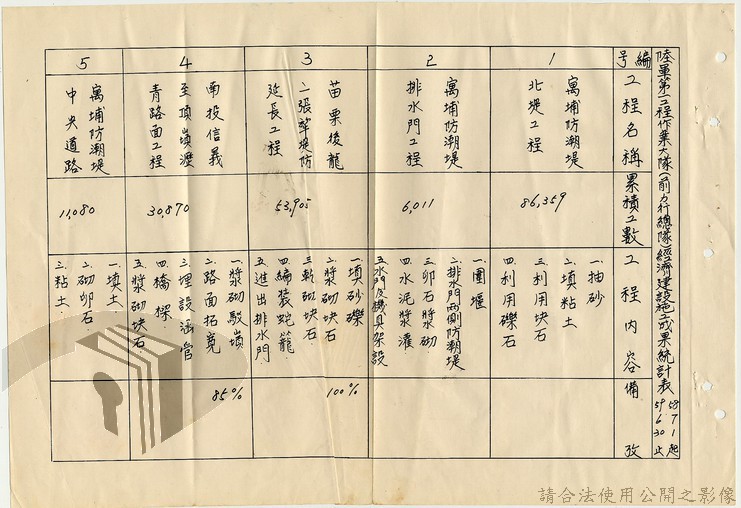 陸軍第一工程作業大隊(前力行總隊)經濟建設施工成果統計表 58 7 1 起
59 6 30 止
編號
工程名稱
累積工數
工程內容
備攷
1
萬埔防潮堤
北堤工程
86,359
一.抽砂
二.填粘土
三.利用块石
四.利用礫石
2
萬埔防潮堤
排水門工程
6,011
一.圍堰
二.排水門兩側防潮堤
三.卵石漿砌
四.水泥漿灌
五.水門及機具架設
3
苗栗後龍
二張犂堤防
延長工程
53,905
一.填砂礫
二.漿砌块石
三.乾砌块石
四.編裝蛇籠
五.進出排水門
100%
4
南投信義
至頂崁瀝
青路面工程
30,870
一.漿砌駁崁
二.路面拓寬
三.埋設涵管
四.橋樑
五.漿砌块石
85%
5
萬埔防潮堤
中央道路
11,080
一.填土
二.砌卵石
三.粘土
請合法使用公開之影像